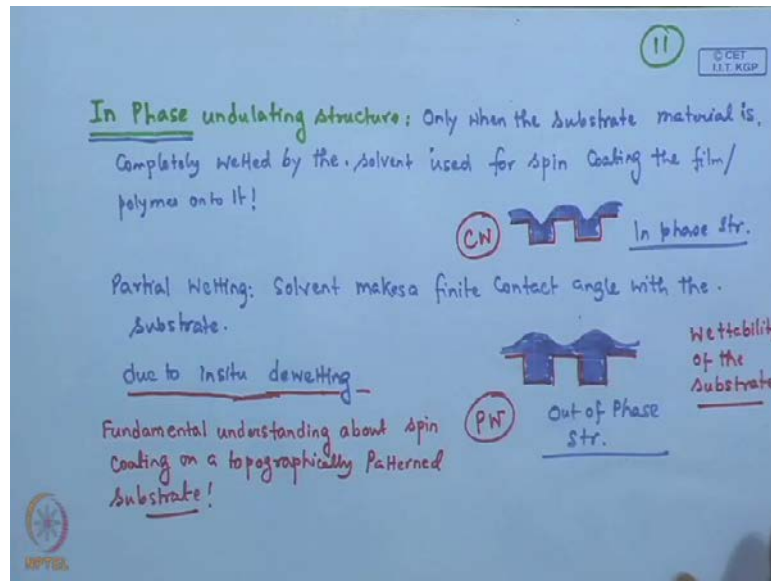 11
© CET
I.I.T. KGP
In Phase undulating structure: Only when the substrate material is.
Completely wetted by the. solvent used for spin Coating the film/
polymer onto It!
CW
In phase Str.
Partial Wetting: Solvent makes a finite Contact angle with the.
substrate.
due to insitu dewetting
Wettabilit
of the
substrate
PW
Out of Phase
Str.
Fundamental understanding about spin
Coating on a topographically Patterned
substrate!
NPTEL